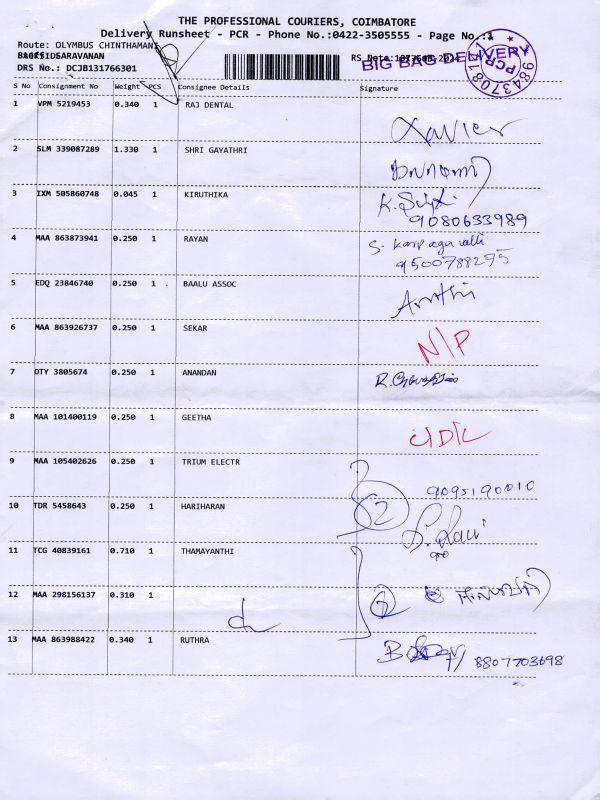 THE PROFESSIONAL COURIERS, COIMBATORE
Delivery Runsheet - PCR - Phone No.:0422-3505555 - Page No.:1
Route: OLYMBUS CHINTHAMANI
SARAVANAN
BIG BAG DELIVERY
DRS No.: DCJB131766301
RS Date:
PCR
S No Consignment No Weight PCS Consignee Details Signature
1 VPM 5219453 0.340 1 RAJ DENTAL Xavier
2 SLM 339087289 1.330 1 SHRI GAYATHRI
3 IXM 505860748 0.045 1 KIRUTHIKA K.
9080633989
4 MAA 863873941 0.250 1 RAYAN S. Karpagavalli
9500788295
5 EDQ 23846740 0.250 1 BAALU ASSOC
6 MAA 863926737 0.250 1 SEKAR N/P
7 OTY 3805674 0.250 1 ANANDAN R.
8 MAA 101400119 0.250 1 GEETHA
9 MAA 105402626 0.250 1 TRIUM ELECTR 9095190010
10 TDR 5458643 0.250 1 HARIHARAN 2
11 TCG 40839161 0.710 1 THAMAYANTHI
12 MAA 298156137 0.310 1 2
13 MAA 863988422 0.340 1 RUTHRA 8807703698